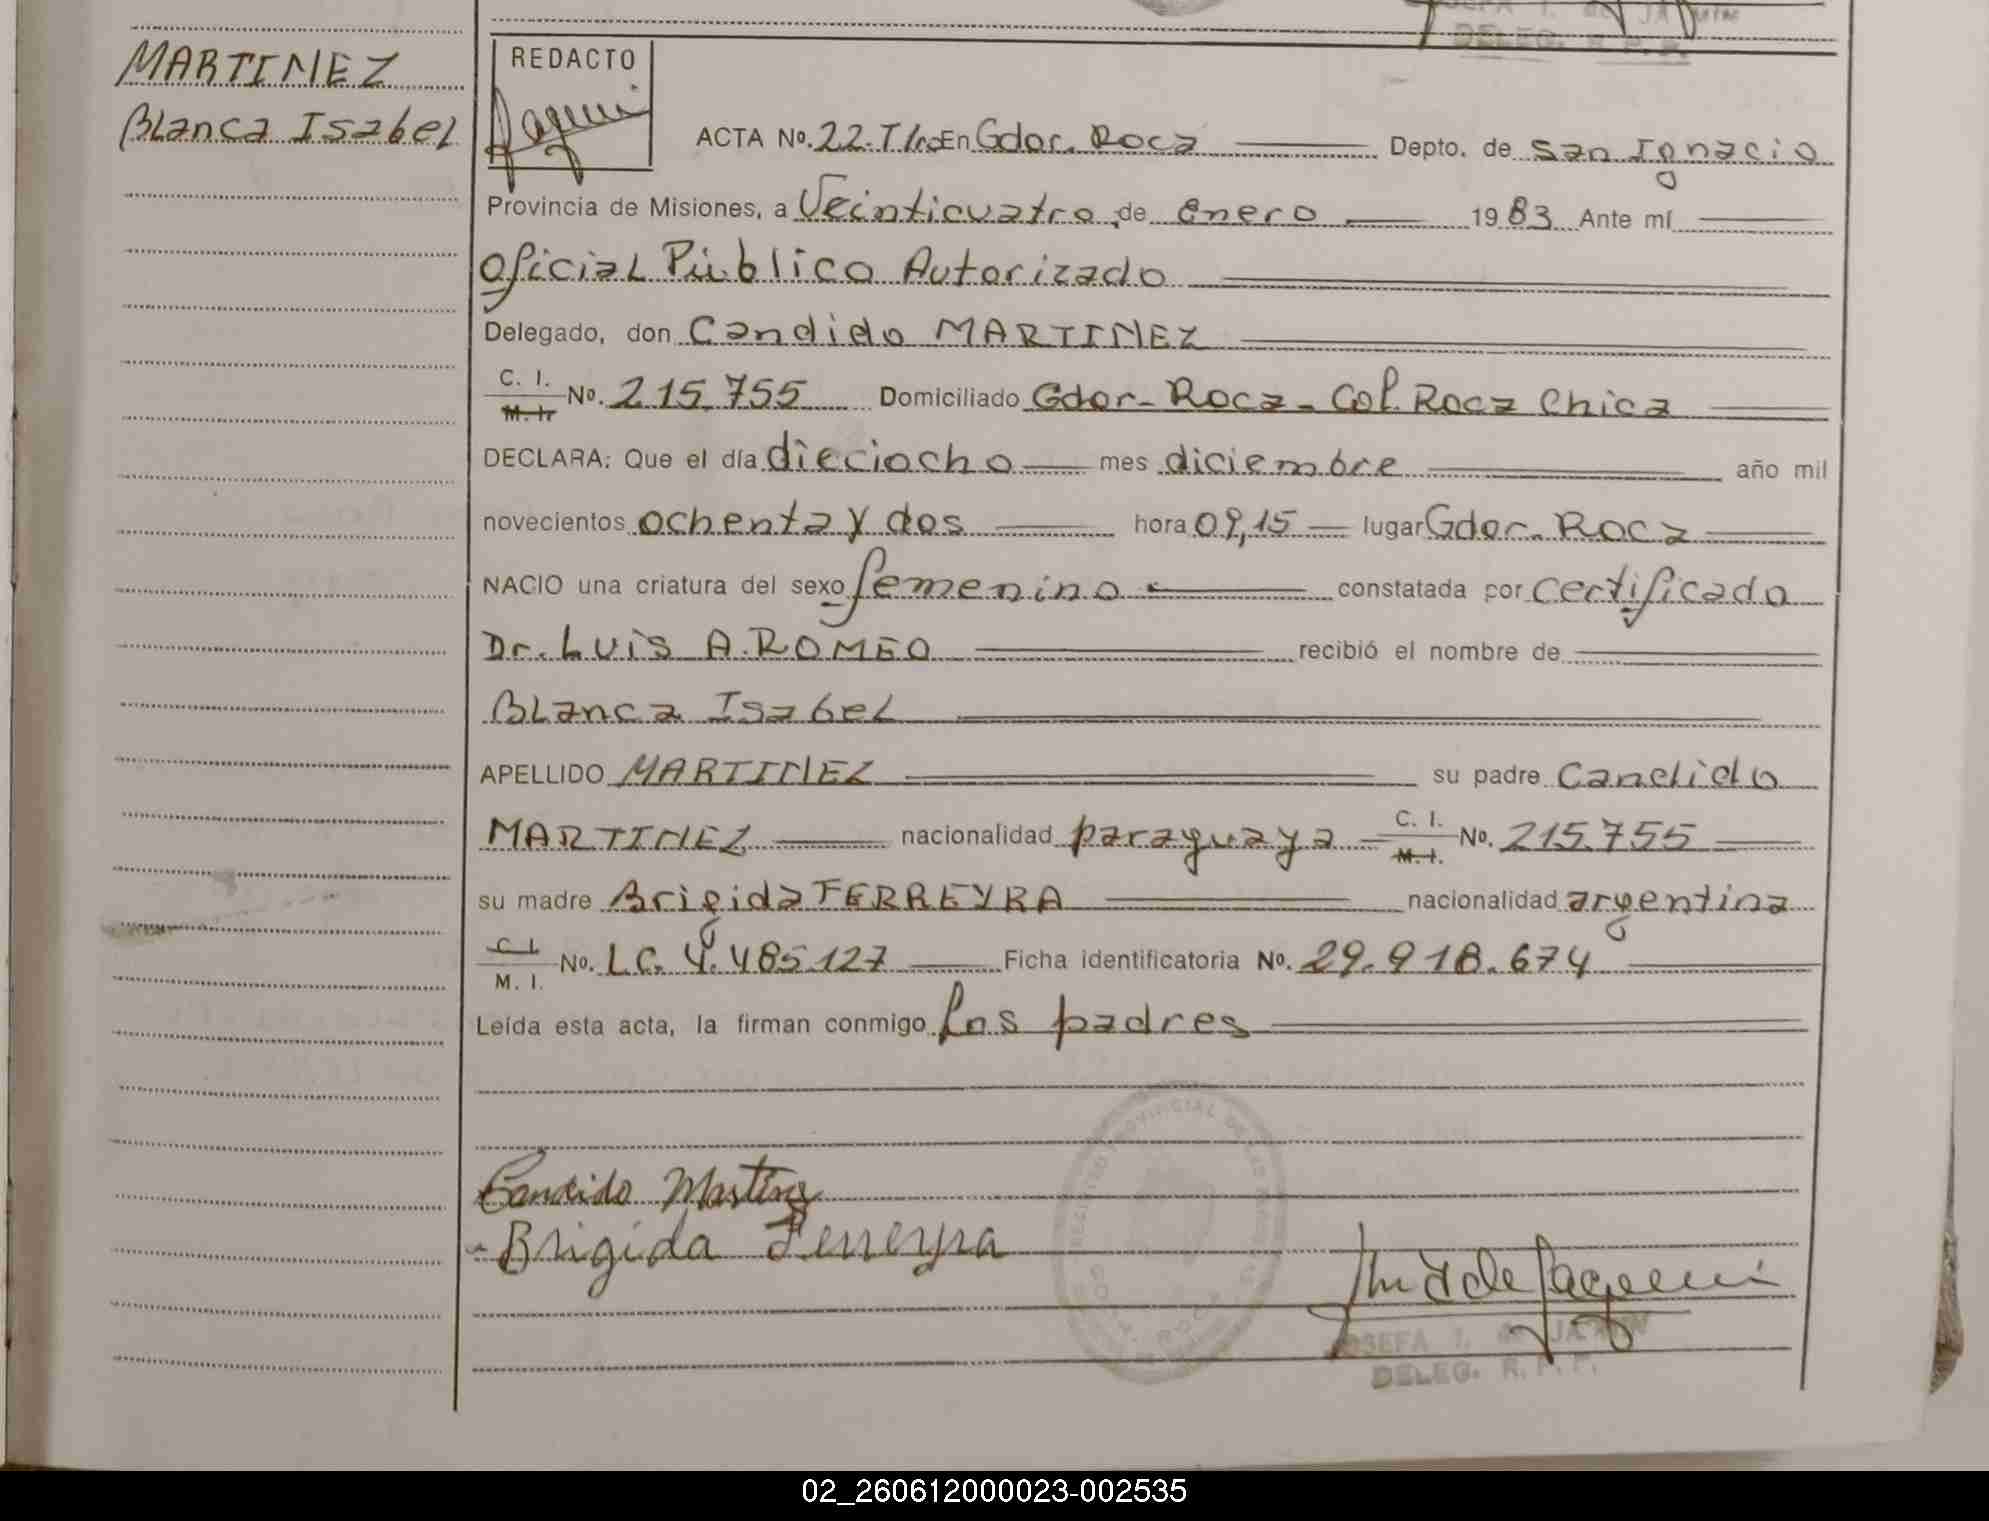 MARTINEZ
Blanca Isabel
REDACTO
ACTA Nº. 22. T 1ro En Gdor. Roca Depto. de San Ignacio
Provincia de Misiones, a Veinticuatro de enero 1983 Ante mí
Oficial Público Autorizado
Delegado, don Candido MARTINEZ
C. I.
M. I. Nº. 215.755 Domiciliado Gdor. Roca - Col. Roca Chica
DECLARA: Que el día dieciocho mes diciembre año mil
novecientos ochenta y dos hora 09,15 lugar Gdor. Roca
NACIO una criatura del sexo femenino constatada por certificado
Dr. Luis A. ROMEO recibió el nombre de
Blanca Isabel
APELLIDO MARTINEZ su padre Candido
MARTINEZ nacionalidad paraguaya C. I.
M. I. Nº. 215.755
su madre Brigida FERREYRA nacionalidad argentina
C. I.
M. I. Nº. L.C. 4.485.127 Ficha identificatoria Nº. 29.918.674
Leída esta acta, la firman conmigo los padres
Candido Martinez
Brigida Ferreyra
JOSEFA I. de
DELEG. R. P. P.
02_260612000023-002535